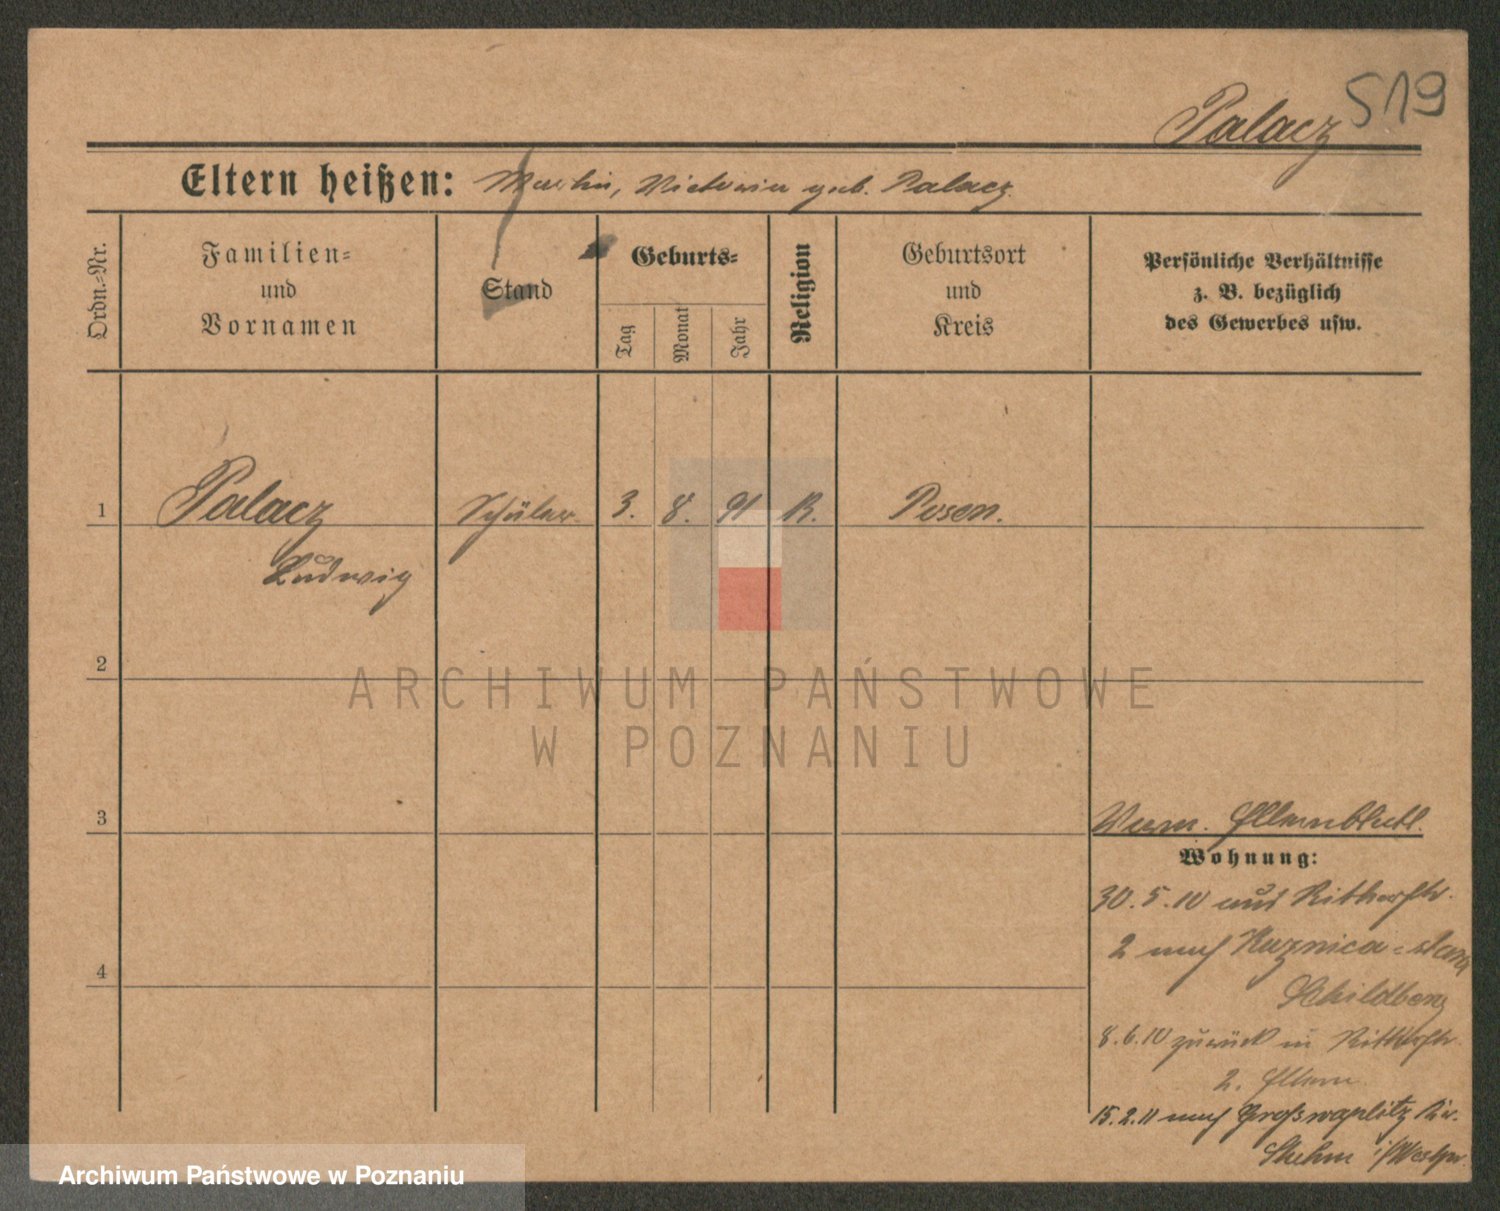 519
Palacz
Eltern heißen: Martin, Victoria geb. Palacz
Ordn.-Nr.
Familien-
und
Vornamen
Stand
Geburts-
Tag
Monat
Jahr
Religion
Geburtsort
und
Kreis
Persönliche Verhältnisse
z. B. bezüglich
des Gewerbes usw.
1 Palacz Schüler 3. 8. 91 K. Posen.
Ludwig
2
ARCHIWUM PAŃSTWOWE
W POZNANIU
3
Elternblatt.
Wohnung:
30.5.10 aus Ritterstr.
2 nach Kuznica-stara
Schildberg
4
8.6.10 zurück in Ritterstr.
2. Eltern
15.2.11 nach Großwaplitz Kr.
Stuhm i/Westpr.
Archiwum Państwowe w Poznaniu